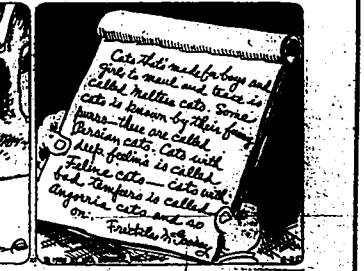 Cats that's made for boys and
girls to maul and tease is
called Maltese cats. Some
cats is known by their funny
purrs—these are called
Persian cats. Cats with
deep feelin's is called
Feline cats—cats with
bad tempers is called
Angorria cats and so
on.
Freckles McGoosey